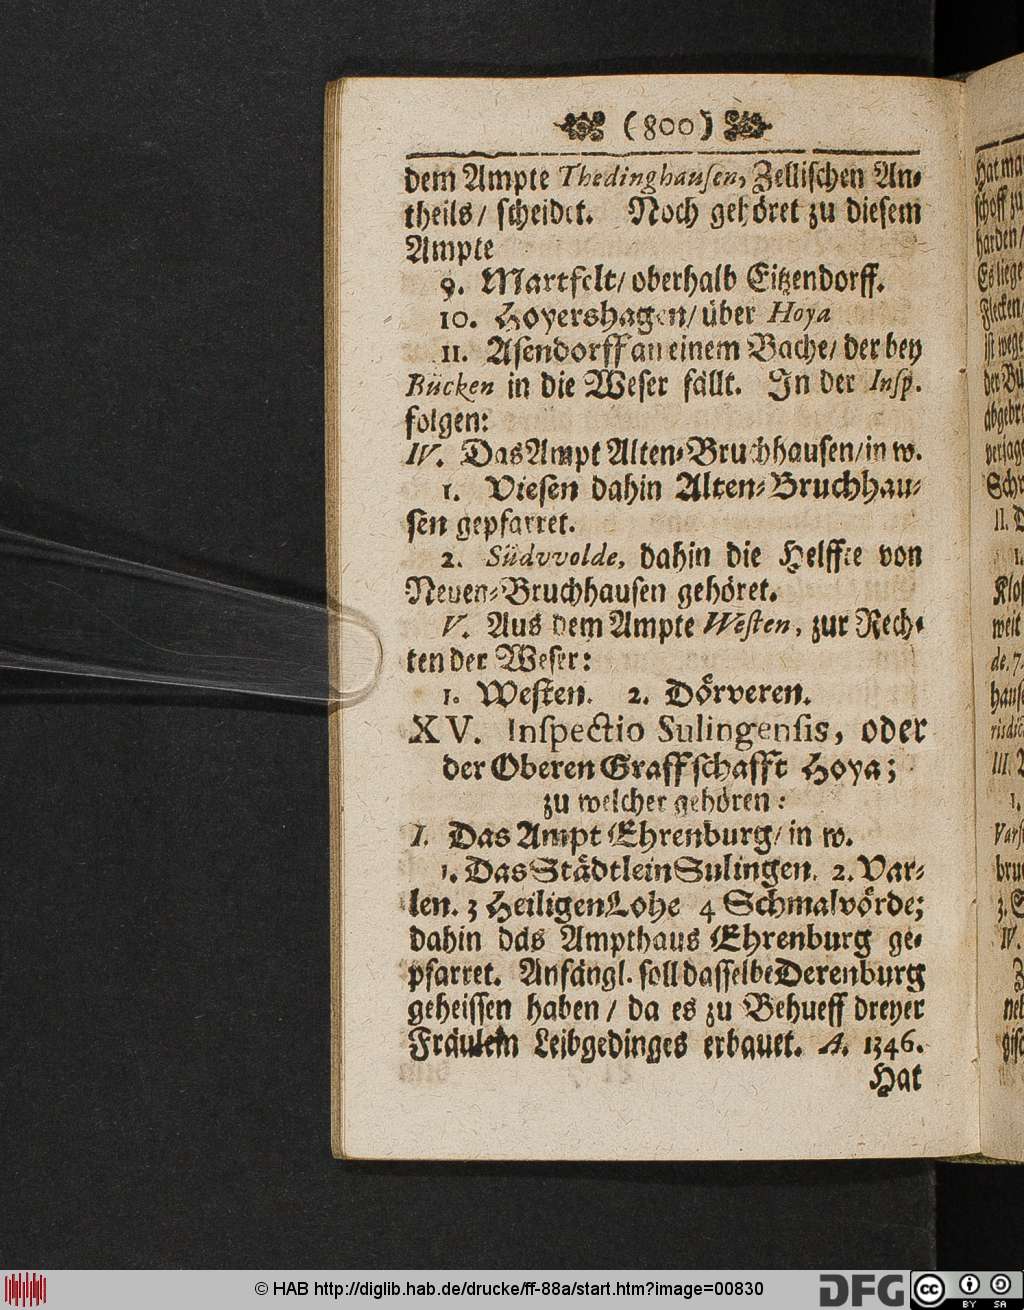 (800)
dem Ampte Thedinghausen, Zellischen An-
theils/ scheidet. Noch gehöret zu diesem
Ampte
9. Martfelt/ oberhalb Eitzendorff.
10. Hoyershagen/ über Hoya
11. Asendorff an einem Bache/ der bey
Bücken in die Weser fällt. In der Insp.
folgen:
IV. Das Ampt Alten-Bruchhausen/ in w.
1. Viesen dahin Alten-Bruchhau-
sen gepfarret.
2. Südvvolde, dahin die Helffte von
Neuen-Bruchhausen gehöret.
V. Aus dem Ampte Westen, zur Rech-
ten der Weser:
1. Westen. 2. Dörveren.
XV. Inspectio Sulingensis, oder
der Oberen Graffschafft Hoya;
zu welcher gehören:
I. Das Ampt Ehrenburg/ in w.
1. Das Städtlein Sulingen. 2. Var-
len. 3 Heiligen Lohe 4 Schmalvörde;
dahin das Ampthaus Ehrenburg ge-
pfarret. Anfängl. soll dasselbe Derenburg
geheissen haben/ da es zu Behueff dreyer
Fräulein Leibgedinges erbauet. A. 1346.
Hat
Hat ma
schoff zu
harden/
Es liege
Flecken/
ist wege
der Bü
abgebr
verjage
Schr
II. D
1.
Klos
weit
de. 7.
hause
risdic
III. 
1.
Varst
bruc
3. S
IV.
Z
nel
gisc
© HAB http://diglib.hab.de/drucke/ff-88a/start.htm?image=00830
DFG
cc
BY SA